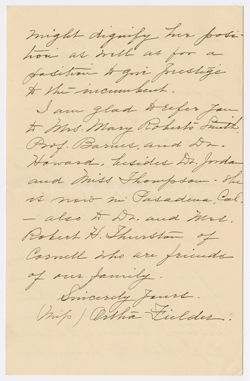 might dignify her posi-
tion as well as for a
position to give prestige
to the incumbent.
I am glad to refer you
to Mrs. Mary Roberts Smith,
Prof. Barnes and Dr.
Howard, besides Dr. Jordan
and Miss Thompson. She
is now in Pasadena, Cal.
– also to Dr. and Mrs.
Robert H. Thurston of
Cornell who are friends
of our family.
Sincerely Yours.
(Miss) Ortha Fielder.